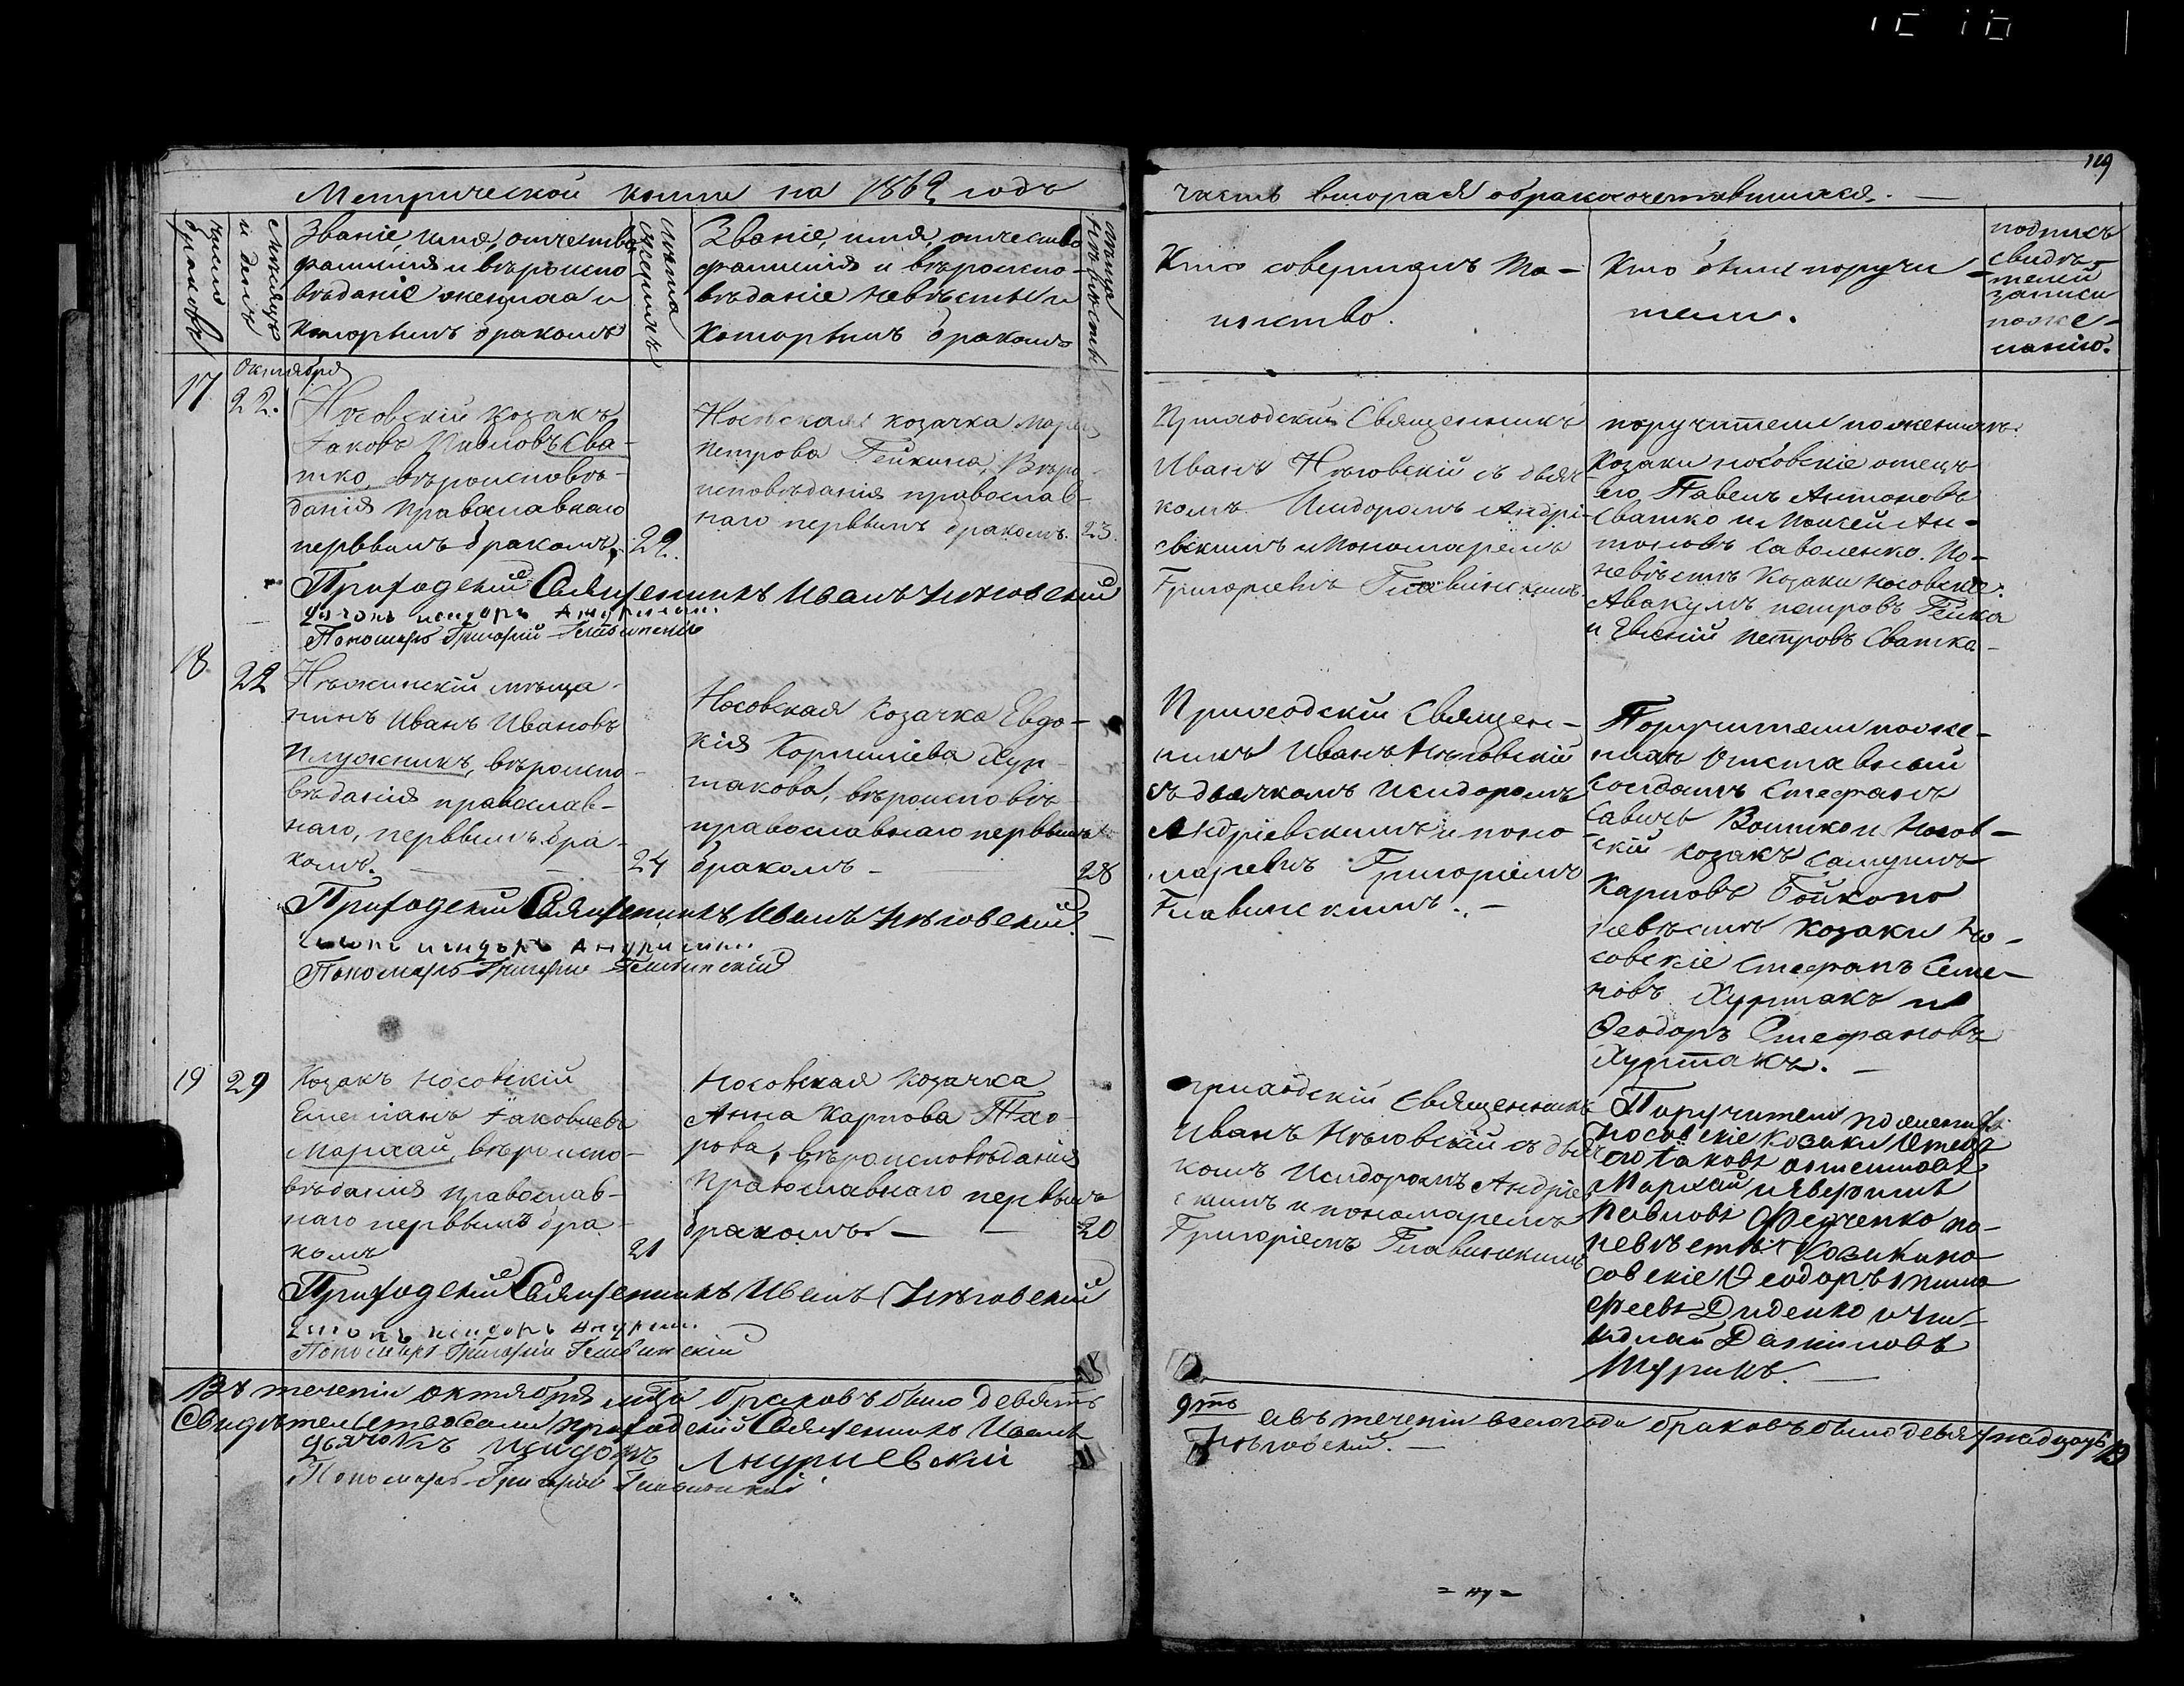 119
Метрической книги на 1862 годъ
часть вторая о бракосочетавшихся.
число браковъ
мѣсяцъ и день
Званіе, имя, отчество
фамилія и вѣроиспо
вѣданіе жениха и
которымъ бракомъ
лѣта жениха
Званіе, имя, отчество
фамилія и вѣроиспо-
вѣданіе невѣсты и
которымъ бракомъ
лѣта невѣсты
Кто совершалъ Та-
инство.
Кто были поручи
тели.
подпись
свидѣ-
телей
записи
по же-
ланію.
Октября
17 22.
Носовскій козакъ
Іаковъ Павловъ Сва-
тко, вѣроисповѣ-
данія православнаго
первымъ бракомъ. 22.
Носовская козачка
Петрова Гейкина, Вѣро
исповѣданія православ-
наго первымъ бракомъ. 23.
Приходскій Священникъ
Иванъ Нѣговскій съ дьяч
комъ Исидоромъ Андрі-
евскимъ и Пономаремъ
Григоріемъ Главинскимъ.
поручители по женихѣ:
Козаки носовскіе отецъ
его Павелъ Антоновъ
Сватко и Моисей Ан-
тоновъ Саволенко. По-
невѣстѣ Козаки носовскіе:
Авакумъ петровъ Гейка
и Евсѣй петровъ Сватка-
Приходскій Священникъ Иванъ Нѣговскій
Дьячокъ исидоръ Андриевскій
Пономарь Григорій Главинскій
18. 22
Нѣжинскій мѣща-
нинъ Иванъ Ивановъ
Плужникъ, вѣроиспо-
вѣданія православ-
наго, первымъ бра-
комъ. 24
Носовская Козачка Евдо-
кія Корниліева Хур-
такова, вѣроисповѣ-
православнаго первымъ
бракомъ - 28
Приходскій Священ-
никъ Иванъ Нѣговскій
съ дьячкомъ Исидоромъ
Андріевскимъ и поно
маремъ Григоріемъ
Главинскимъ. -
Поручители по же-
нихѣ Отставной
Солдатъ Стефанъ
Савичъ и Носов-
скій козакъ
Карповъ Бойко по
невѣстѣ козаки Но-
совскіе Стефанъ Семе-
новъ Хуртакъ и
Феодоръ Стефановъ
Хуртакъ. -
Приходскій Священникъ Иванъ Нѣговскій
Дьячокъ исидоръ Андриевскій
Пономарь Григорій Главинскій
19 29
Козакъ носовскій
Емеліанъ Іаковлевъ
Мархай, вѣроиспо-
вѣданія православ-
наго первымъ бра-
комъ 21
Носовская козачка
Анна Карпова Тхо-
рова, вѣроисповѣданія
Православнаго первымъ
бракомъ. - 20
приходскій Священникъ
Иванъ Нѣговскій съ дьяч
комъ Исидоромъ Андріев
скимъ и пономаремъ
Григоріемъ Главинскимъ
Поручители по женихѣ
носовскіе козаки Отецъ
его Іаковъ
Мархай и
Павловъ Федченко по-
невѣстѣ Козаки но
совскіе Феодоръ Тимо
феевъ Диденко и Ни-
колай Даниловъ
Шурикъ. -
Приходскій Священникъ Иванъ Нѣговскій
Дьячокъ исидоръ Андриев.
Пономарь Григорій Главинскій
Въ теченіи октября мца браковъ было девять
9ть
а въ теченіи всего года браковъ было девятнадцать 19
Свидѣтельствовали приходскій Священникъ Иванъ
Нѣговскій. -
Дьячокъ исидоръ Андриевский
Пономарь Григорій Главинскій